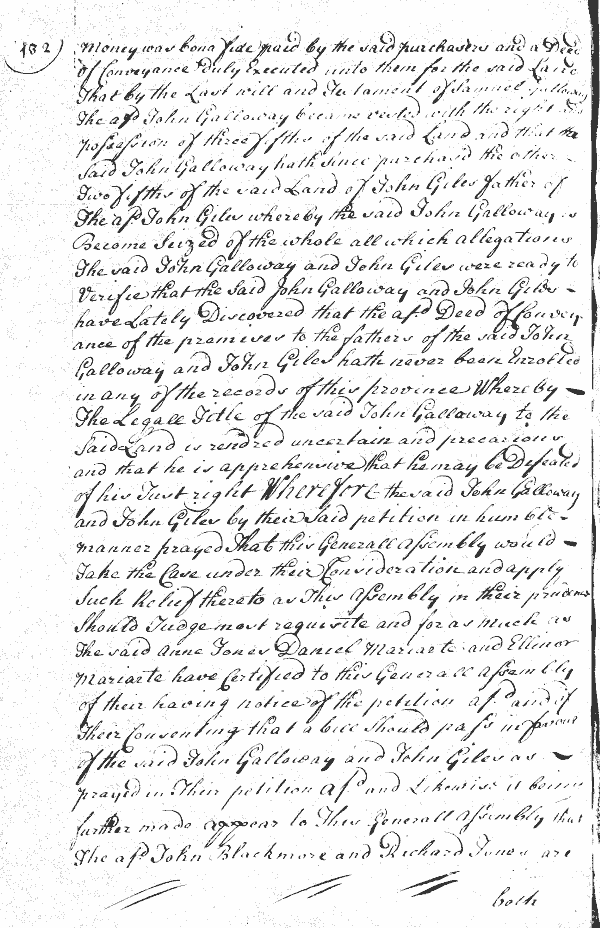 132
Money was bona fide paid by the said purchasers and a Deed
of Conveyance Duly Executed unto them for the said Land
That by the Last will and Testament of Samuel Galloway
The afd. John Galloway became vested with the right and
possession of three fifths of the said Land and that the
Said John Galloway hath since purchasd the other
Two fifths of the said Land of John Giles father of
The afd. John Giles whereby the said John Galloway is
Become Seized of the whole all which allegations
The said John Galloway and John Giles were ready to
Verifie that the Said John Galloway and John Giles -
have Lately Discovered that the afd. Deed of Convey
ance of the premises to the fathers of the said John
Galloway and John Giles hath never been Enrolled
in any of the records of this province Whereby -
The Legall Title of the said John Galloway to the
Said Land is rendred uncertain and precarious
and that he is apprehensive that he may be Defeated
of his Just right Wherefore the said John Galloway
and John Giles by their Said petition in humble -
manner prayed That this Generall Assembly would -
Take the Case under their Consideration and apply
Such Relief thereto as This Assembly in their prudence
Should Judge most requisite and for as much as
The said Anne Jones Daniel Mariarte and Ellinor
Mariarte have Certified to this Generall Assembly
of their having notice of the petition afd. and of
Their Consenting that a bill Should pass in favour
of the said John Galloway and John Giles as -
prayed in Their petition afd. and Likewise it being
further made appear to This Generall Assembly that
The afd. John Blackmore and Richard Jones are
both